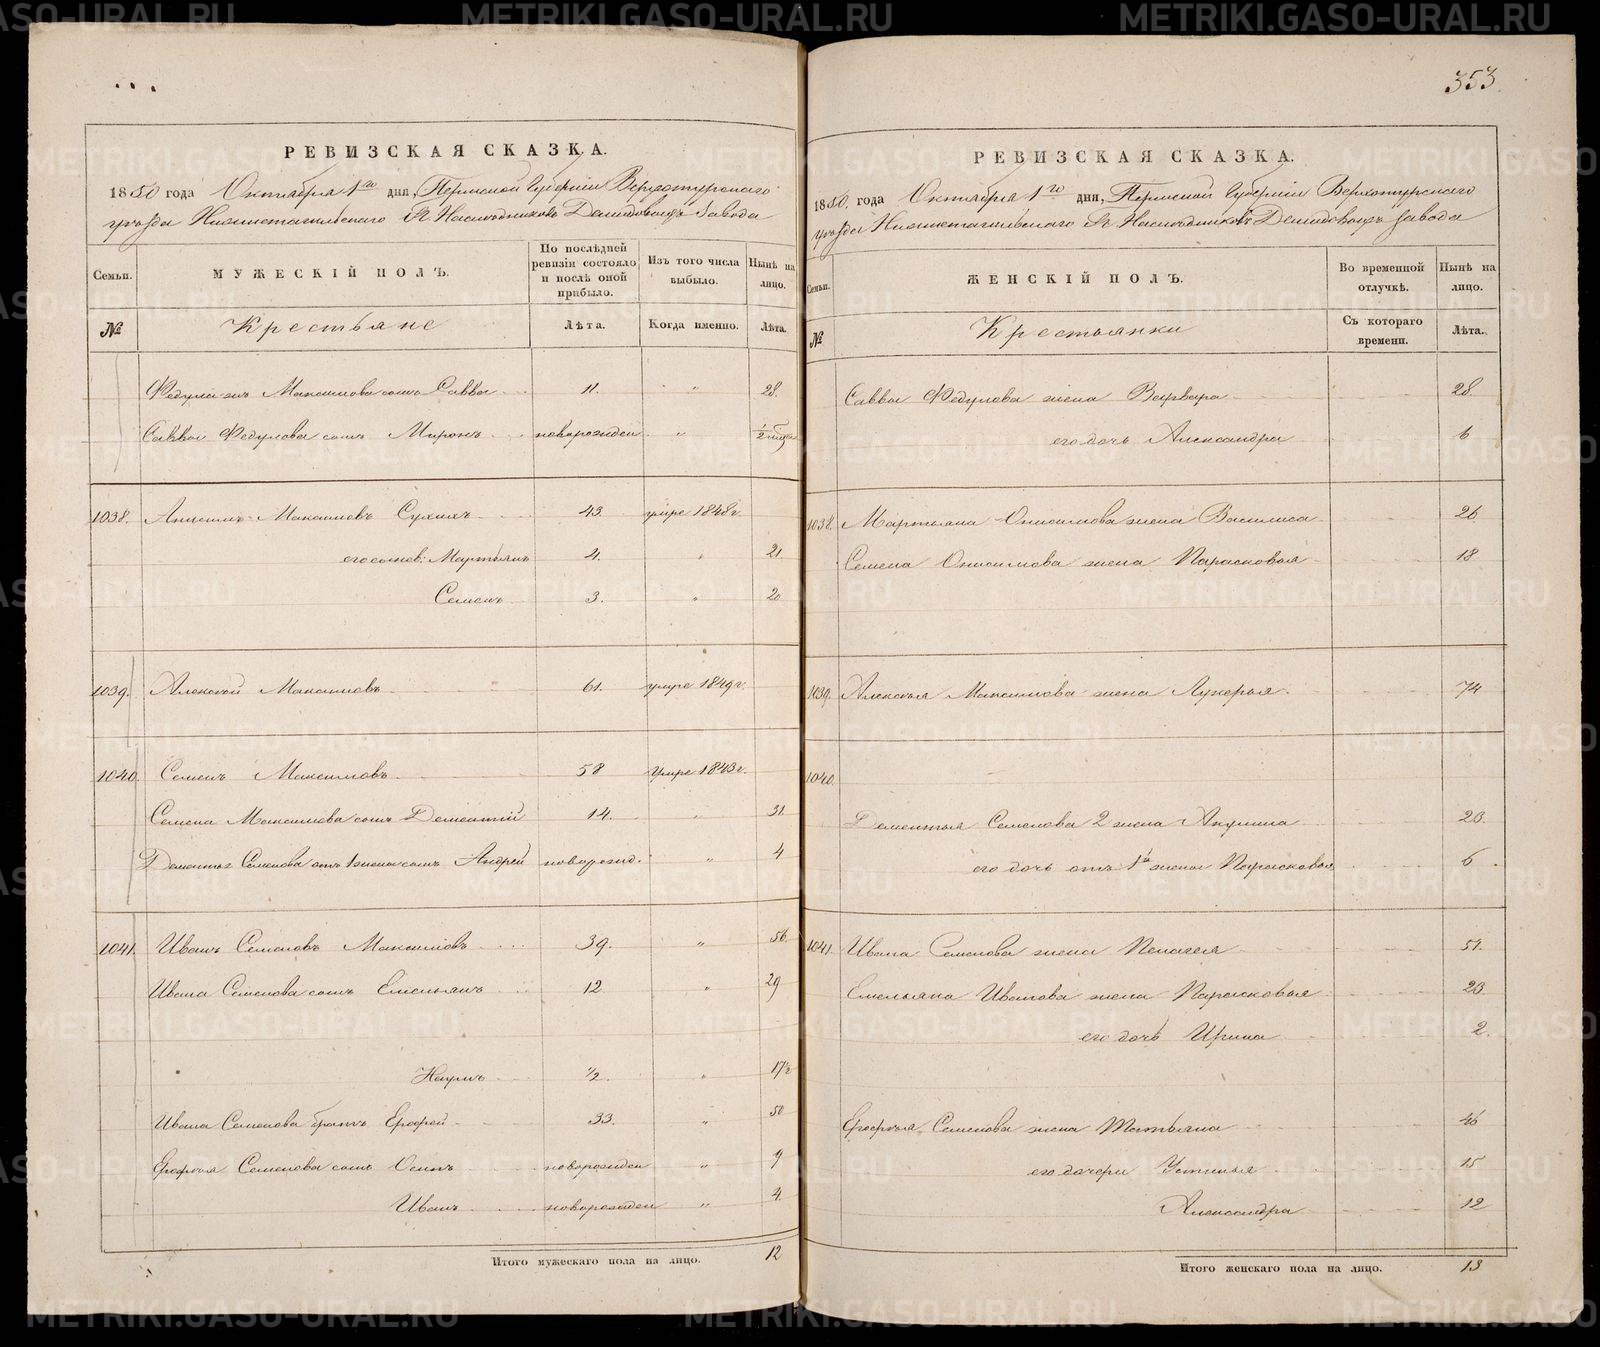 РЕВИЗСКАЯ СКАЗКА.
1850 года Октября 1го дня, Пермской Губернiи Верхотурскаго
уѣзда Нижнетагильскаго Гг. Наслѣдниковъ Демидовыхъ Завода
Семьи. МУЖЕСКIЙ ПОЛЪ. По послѣдней ревизiи состояло и послѣ оной прибыло. Изъ того числа выбыло. Нынѣ на лицо.
№ Крестьяне Лѣта. Когда именно. Лѣта.
Максимова сынъ Савва 11. " 28.
Саввы Федулова сынъ Миронъ новорожден " 1/2 года
1038. Анисимъ Максимовъ Сухихъ 43 умре 1848 г.
его сыновья: Мартьянъ 4. " 21
Семенъ 3. " 20
1039. Алексѣй Максимовъ 61. умре 1849 г.
1040. Семенъ Максимовъ 58 умре 1843 г.
Семена Максимова сынъ Дементiй 14. " 31.
Дементья Семенова отъ 1 жены сынъ Андрей новорожд. " 4
1041. Иванъ Семеновъ Максимовъ 39. " 56.
Ивана Семенова сынъ Емельянъ 12 " 29
Наумъ 1/2. " 17 1/2
Ивана Семенова братъ Ерофей 33. " 50
Ерофея Семенова сынъ Осипъ новорожден " 9
Иванъ новорожден " 4.
Итого мужескаго пола на лицо. 12
353
РЕВИЗСКАЯ СКАЗКА.
1850. года Октября 1го дня, Пермской Губернiи Верхотурскаго
уѣзда Нижнетагильскаго Гг. Наслѣдниковъ Демидовыхъ завода
Семьи. ЖЕНСКIЙ ПОЛЪ. Во временной отлучкѣ. Нынѣ на лицо.
№ Крестьянки Съ котораго времени. Лѣта.
Саввы Федулова жена Варвара 28.
его дочь Александра 6
1038. Мартьяна Онисимова жена Василиса 26
Семена Онисимова жена Парасковья 18
1039. Алексѣя Максимова жена Лукерья 74
1040.
Дементья Семенова 2 жена Акулина 23.
его дочь отъ 1й жены Парасковья 6
1041. Ивана Семенова жена Пелагея 51.
Емельяна Иванова жена Парасковья 23
его дочь Ирина 2.
Ерофѣя Семенова жена Татьяна 46
его дочери Устинья 15
Александра 12
Итого женскаго пола на лицо. 13
METRIKI.GASO-URAL.RU